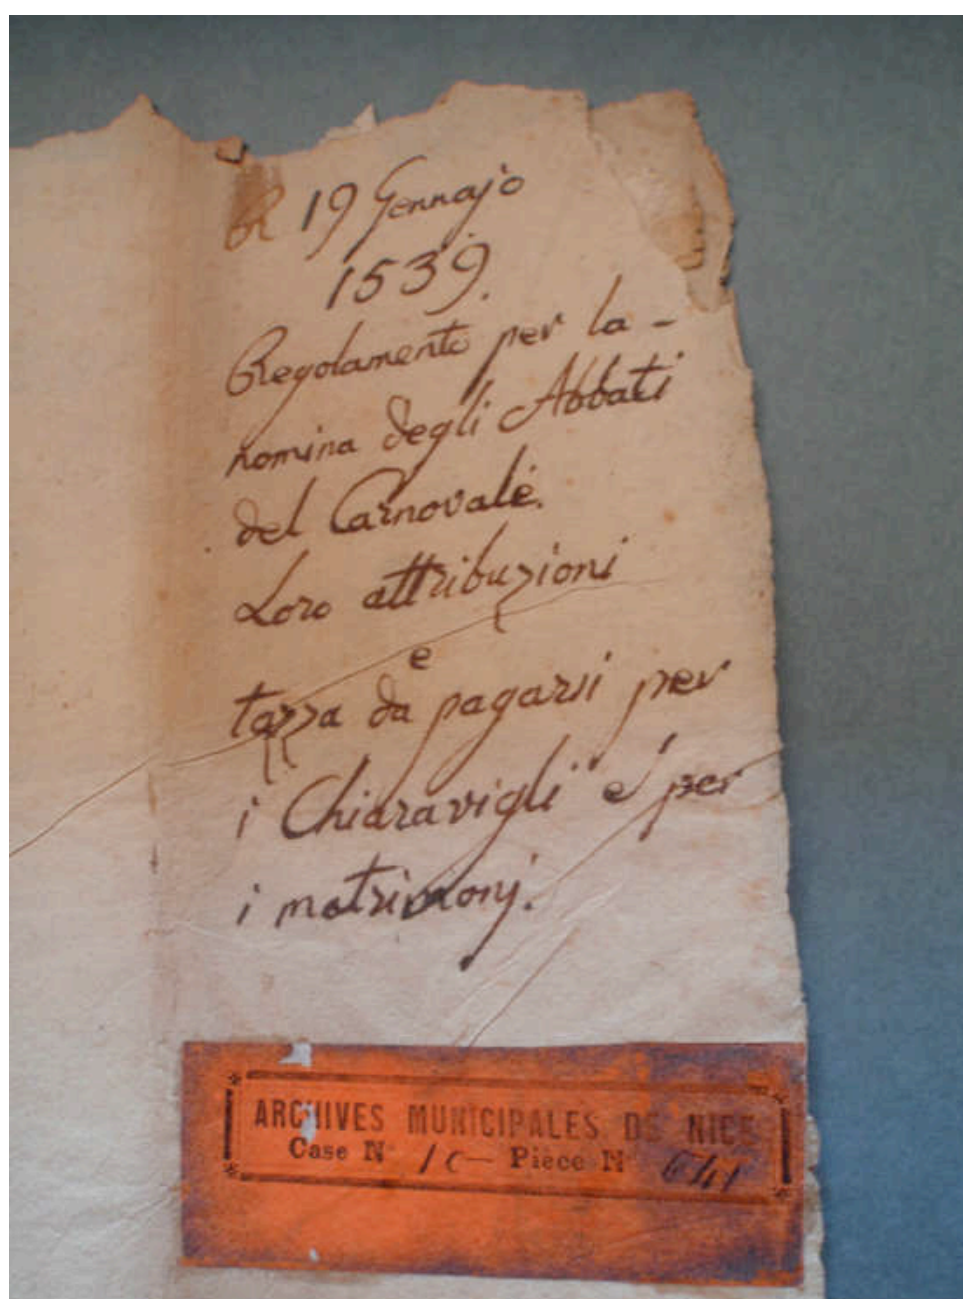 R 19 Gennajo
1539.
Regolamento per la -
nomina degli Abbati
del Carnovale.
Loro attribuzioni
e
tazza da pagarsi per
i Chiaravigli e per
i matrimonj.
ARCHIVES MUNICIPALES DE NICE
Case N° - Pièce N°